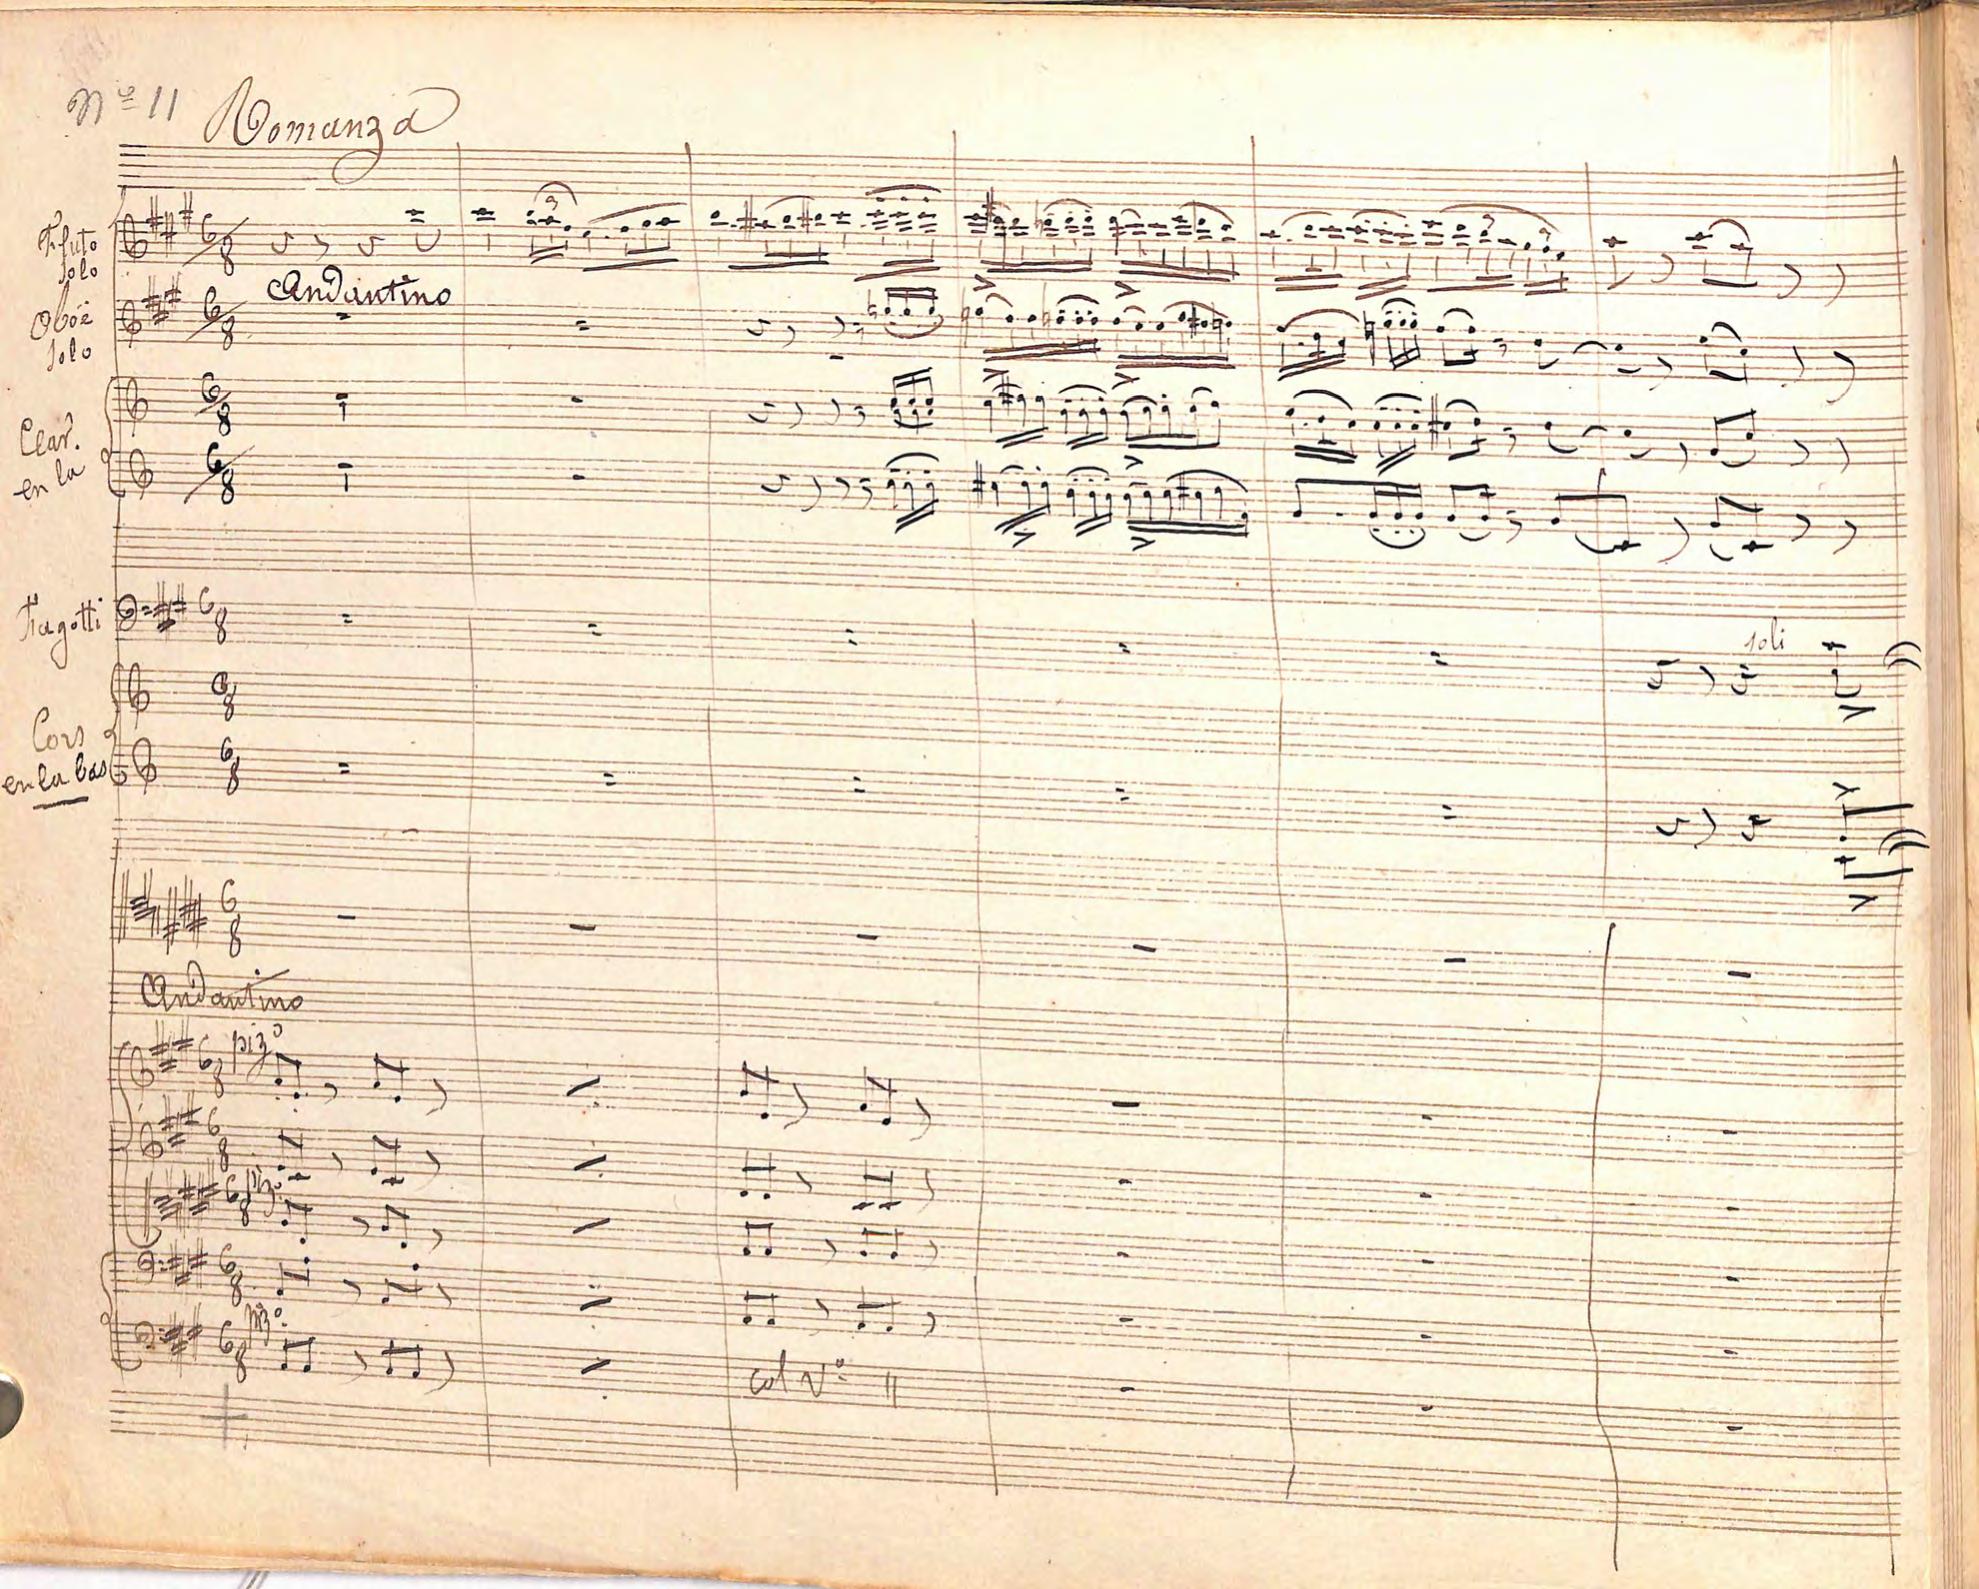 Nº 11 Romanza
Fluto solo
Andantino
Oboë solo
Clar. en la
Fagotti
soli
Cors en la bas
Andantino
pizº
piz.
pizº
col Vº